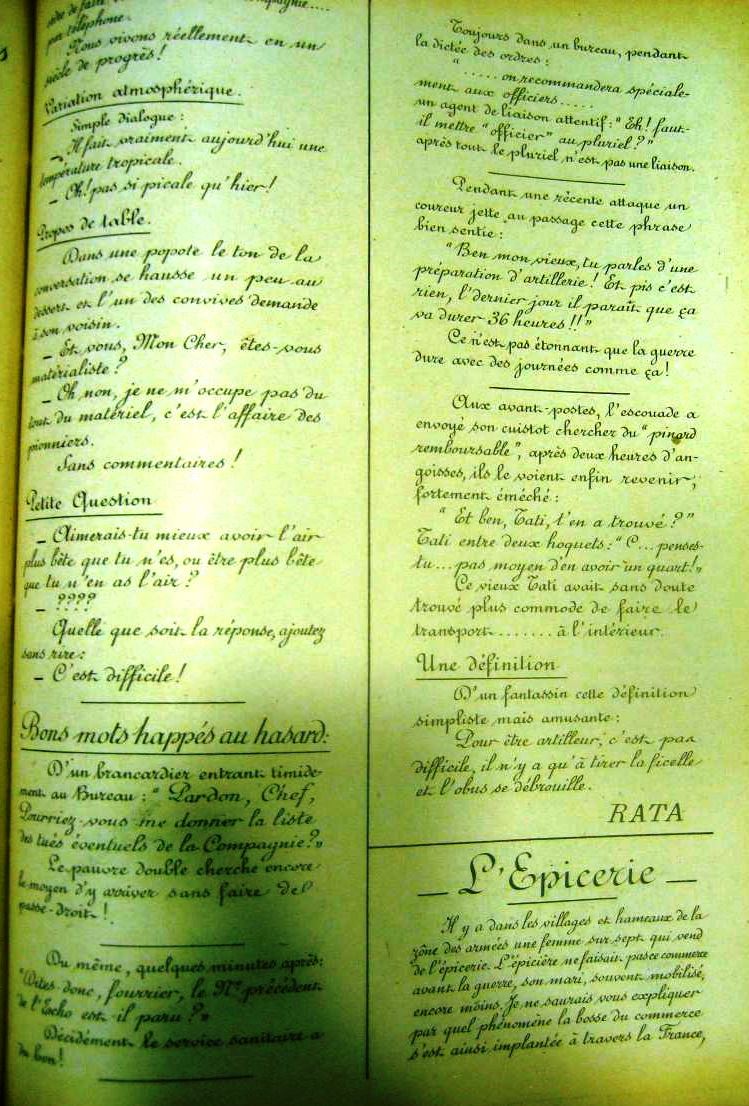 de faire
par téléphone.
Nous vivons réellement en un
siècle de progrès!
Variation atmosphérique.
Simple dialogue:
_ Il fait vraiment aujourd'hui une
température tropicale.
_ Oh! pas si picale qu'hier!
Propos de table.
Dans une popote le ton de la
conversation se hausse un peu au
dessert et l'un des convives demande
à son voisin.
_ Et vous, Mon Cher, êtes-vous
matérialiste?
_ Oh non, je ne m'occupe pas du
tout du matériel, c'est l'affaire des
pionniers.
Sans commentaires!
Petite Question
_ Aimerais-tu mieux avoir l'air
plus bête que tu n'es, ou être plus bête
que tu n'en as l'air?
_ ????
Quelle que soit la réponse, ajoutez
sans rire:
_ C'est difficile!
Bons mots happés au hasard:
D'un brancardier entrant timide-
ment au Bureau: "Pardon, Chef,
Pourriez-vous me donner la liste
des tués éventuels de la Compagnie?"
Le pauvre double cherche encore
le moyen d'y arriver sans faire de
passe-droit!
Du même, quelques minutes après:
"Dites donc, fourrier, le No précédent
de l'Echo est-il paru?"
Décidément le service sanitaire a
du bon!
Toujours dans un bureau, pendant
la dictée des ordres:
"..... on recommandera spéciale-
ment aux officiers.....
un agent de liaison attentif: "Eh! faut-
il mettre "officier" au pluriel?"
après tout le pluriel n'est pas une liaison.
Pendant une récente attaque un
coureur jette au passage cette phrase
bien sentie:
"Ben mon vieux, tu parles d'une
préparation d'artillerie! Et pis c'est
rien, l'dernier jour il paraît que ça
va durer 36 heures!!"
Ce n'est pas étonnant que la guerre
dure avec des journées comme ça!
Aux avant-postes, l'escouade a
envoyé son cuistot chercher du "pinard
remboursable", après deux heures d'an-
goisses, ils le voient enfin revenir,
fortement éméché:
"Et ben, Tati, t'en a trouvé?"
Tati entre deux hoquets: "C... penses-
tu... pas moyen d'en avoir un quart!"
Ce vieux Tati avait sans doute
trouvé plus commode de faire le
transport....... à l'intérieur.
Une définition
D'un fantassin cette définition
simpliste mais amusante:
Pour être artilleur, c'est pas
difficile, il n'y a qu'à tirer la ficelle
et l'obus se débrouille.
RATA
_ L'Epicerie _
Il y a dans les villages et hameaux de la
zône des armées une femme sur sept qui vend
de l'épicerie. L'épicière ne faisait pas ce commerce
avant la guerre, son mari, souvent mobilisé,
encore moins. Je ne saurais vous expliquer
par quel phénomène la bosse du commerce
s'est ainsi implantée à travers la France,